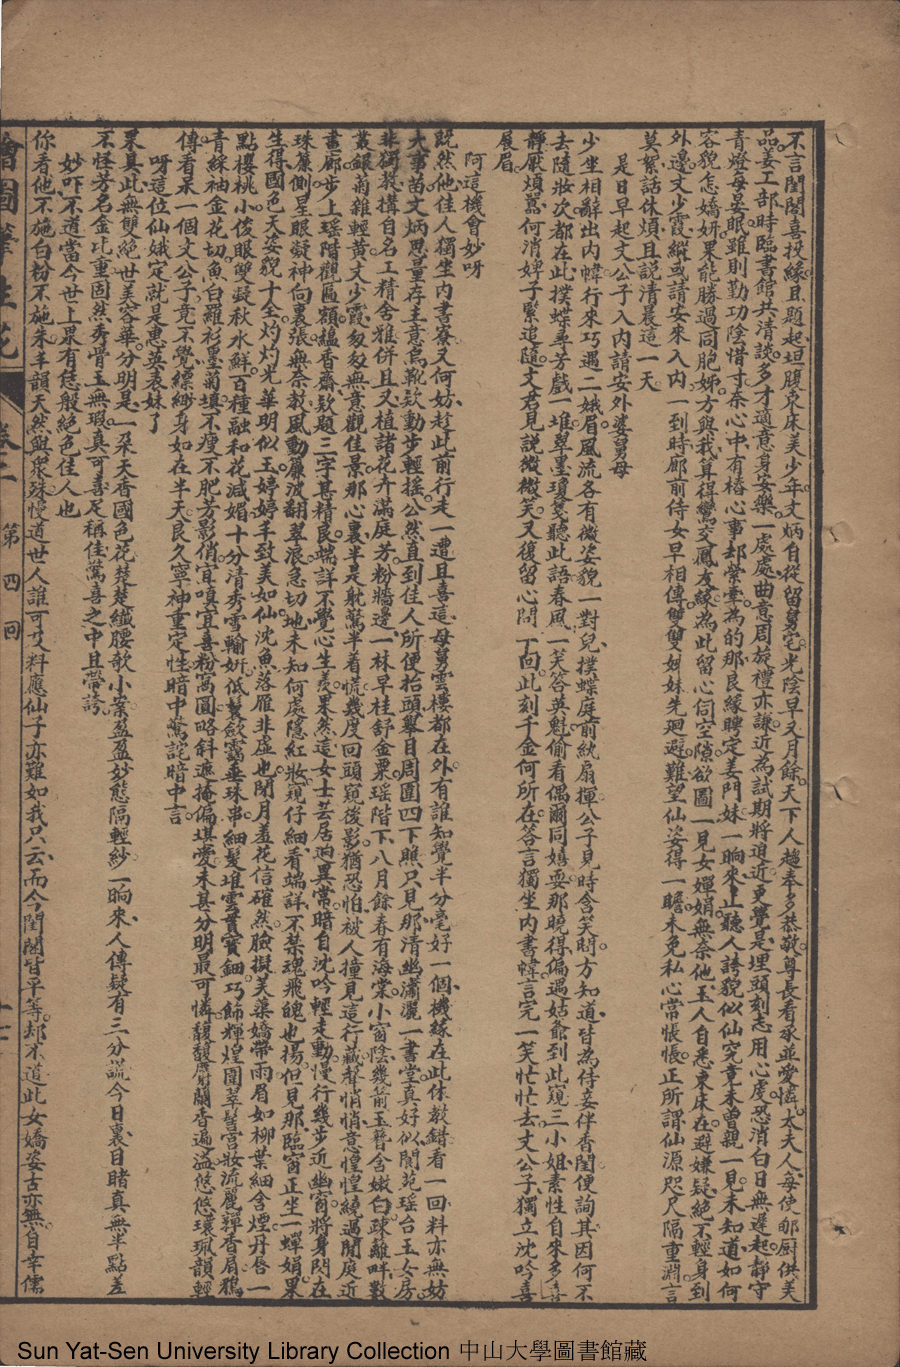 不言閨閣喜投緣且題起坦腹東床美少年文炳自從留舅宅光陰早又月餘天下人趨奉多恭敬尊長看承並愛憐太夫人每使郁厨供美
品姜工部時臨書館共清談多才適意身安樂一處處曲意周旋禮亦謙近為試期將迫近更覺是埋頭刻志用心虔恐消白日無遲起靜守
青燈每晏眠雖則勤功陰惜寸奈心中有樁心事却縈牽為的那良緣聘定姜門妹一晌來止聽人誇貌似仙究竟未曾親一見未知道如何
容貌怎嬌妍果能勝過同胞姊方與我算得鸞交鳳友緣為此留心伺空隙欲圖一見女嬋娟無奈他玉人自悉東床在避嫌疑絕不輕身到
外邊文少霞縱或請安來入內一到時廊前侍女早相傳雙雙姊妹先迴避難望仙姿得一瞻未免私心常悵悵正所謂仙源咫尺隔重淵言
莫絮話休煩且説清晨這一天
是日早起文公子入內請安外婆舅母
少坐相辭出內幃行來巧遇二娥眉風流各有微姿貌一對兒撲蝶庭前紈扇揮公子見時含笑問方知道皆為侍妾伴香閨便詢其因何不
去隨妝次都在此撲蝶尋芳戲一堆翠墨瓊慧聽此語春風一笑答英魁偷看偶爾同嬉耍那曉得偏遇姑爺到此窺三小姐素性自來多喜
靜厭煩囂何消婢子緊追隨文君見説微微笑又復留心問一回此刻千金何所在答言獨坐內書幃言完一笑忙忙去文公子獨立沈吟喜
展眉
阿這機會妙呀
既然他佳人獨坐內書寮又何妨趁此前行走一遭且喜這母舅雲樓都在外有誰知覺半分毫好一個機緣在此休教錯看一回料亦無妨
大事苗文炳思量存主意烏靴欵動步輕搖公然直到佳人所便抬頭舉目周圍四下瞧只見那清幽瀟灑一書堂真好似閬苑瑤台玉女房
非研教構自名工精舍雅併且又植諸花卉滿庭芳粉牆邊一林早桂舒金粟瑤階下八月餘春有海棠小窗陰幾箭玉簪含嫩白疎籬畔數
叢銀菊雜輕黃文少霞匆匆無意觀佳景那心裏半是躭驚半着慌幾度回頭窺後影猶恐怕被人撞見這行藏聲悄悄意惶惶繞過閒庭近
畫廊步上瑤階觀匾額韞香齋欵題三字甚精良端詳不覺心生羨果然這女士芸居迥異常暗自沈吟輕走動慢行幾步近幽窗將身閃在
珠簾側星眼凝神向裏張無奈教風動簾波翻翠浪急切地未知何處隱紅妝窺仔細看端詳不禁魂飛魄也揚但見那臨窗正坐一嬋娟果
生得國色天姿貌十全灼灼光華明似玉婷婷丰致美如仙沈魚落雁非虛也閉月羞花信確然臉擬芙蕖嬌帶雨眉如柳葉細含煙丹唇一
點櫻桃小俊眼雙凝秋水鮮百種融和花減媚十分清秀雪輸妍低鬟斂靄垂珠串細髮堆雲貫寶鈿巧飾輝煌圍翠髻宮妝流麗嚲香肩鴉
青綵袖金花切魚白羅衫墨菊填不瘦不肥芳影俏宜嗔宜喜粉窩圓略斜遮掩偏堪愛未甚分明最可憐馥馥麝蘭香遍溢悠悠環珮韻輕
傳看呆一個文公子竟不覺縹緲身如在半天良久寧神重定性暗中驚詫暗中言
呀這位仙娥定就是惠英表妹了
果真此無雙絕世美容華分明是一朵天香國色花楚楚纖腰欹小案盈盈妙態隔輕紗一晌來人傳疑有三分謊今日裏目睹真無半點差
不怪芳名金比重固然秀骨玉無瑕真可喜足稱佳萬喜之中且帶誇
妙吓不道當今世上果有恁般絕色佳人也
你看他不施白粉不施朱丰韻天然與衆殊慢道世人誰可及料應仙子亦難如我只云而今閨閣皆平等却不道此女嬌姿古亦無自幸儒
繪圖筆生花
卷二
第四回
Sun Yat-Sen University Library Collection 中山大學圖書館藏